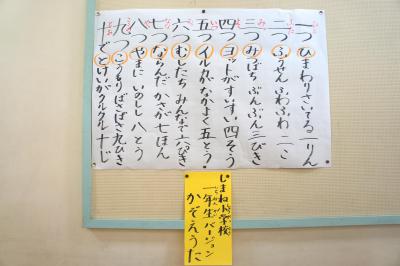 一つ ひまわりさいてる 一りん
二つ ふうせん ふわふわ 二こ
三つ みつばち ぶんぶん 三びき
四つ ヨットがすいすい 四そう
五つ イルカがなかよく 五とう
六つ むしたち みんなで 六ぴき
七つ ならんだ かさが 七ほん
八つ やまに いのしし 八とう
九つ こうもりばさばさ 九ひき
十で とけいがクルクル 十じ
しまね小学校
一年生バージョン
かぞえうた